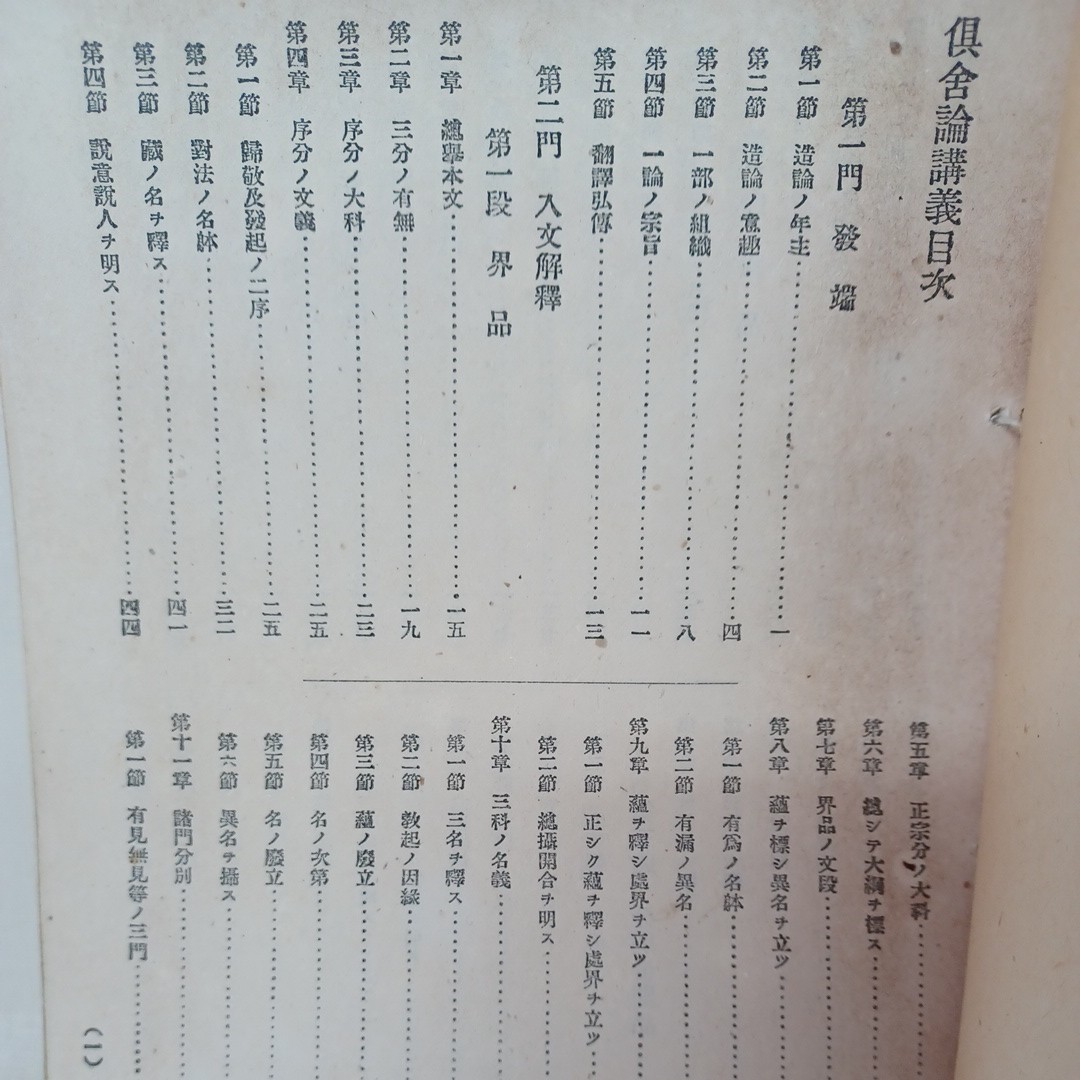 俱舍論講義目次
第一門 發端
第一節 造論ノ年主……一
第二節 造論ノ意趣……四
第三節 一部ノ組織……八
第四節 一論ノ宗旨……一一
第五節 翻譯弘傳……一三
第二門 入文解釋
第一段 界品
第一章 總擧本文……一五
第二章 三分ノ有無……一九
第三章 序分ノ大科……二三
第四章 序分ノ文義……二五
第一節 歸敬及發起ノ二序……二五
第二節 對法ノ名躰……三二
第三節 藏ノ名ヲ釋ス……四一
第四節 說意說人ヲ明ス……四四
第五章 正宗分ノ大科……
第六章 總シテ大綱ヲ標ス……
第七章 界品ノ文段……
第八章 蘊ヲ標シ異名ヲ立ツ……
第一節 有爲ノ名躰……
第二節 有漏ノ異名……
第九章 蘊ヲ釋シ處界ヲ立ツ……
第一節 正シク蘊ヲ釋シ處界ヲ立ツ……
第二節 總攝開合ヲ明ス……
第十章 三科ノ名義……
第一節 三名ヲ釋ス……
第二節 敎起ノ因緣……
第三節 蘊ノ廢立……
第四節 名ノ次第……
第五節 名ノ廢立……
第六節 異名ヲ攝ス……
第十一章 諸門分別……
第一節 有見無見等ノ三門……
(一)